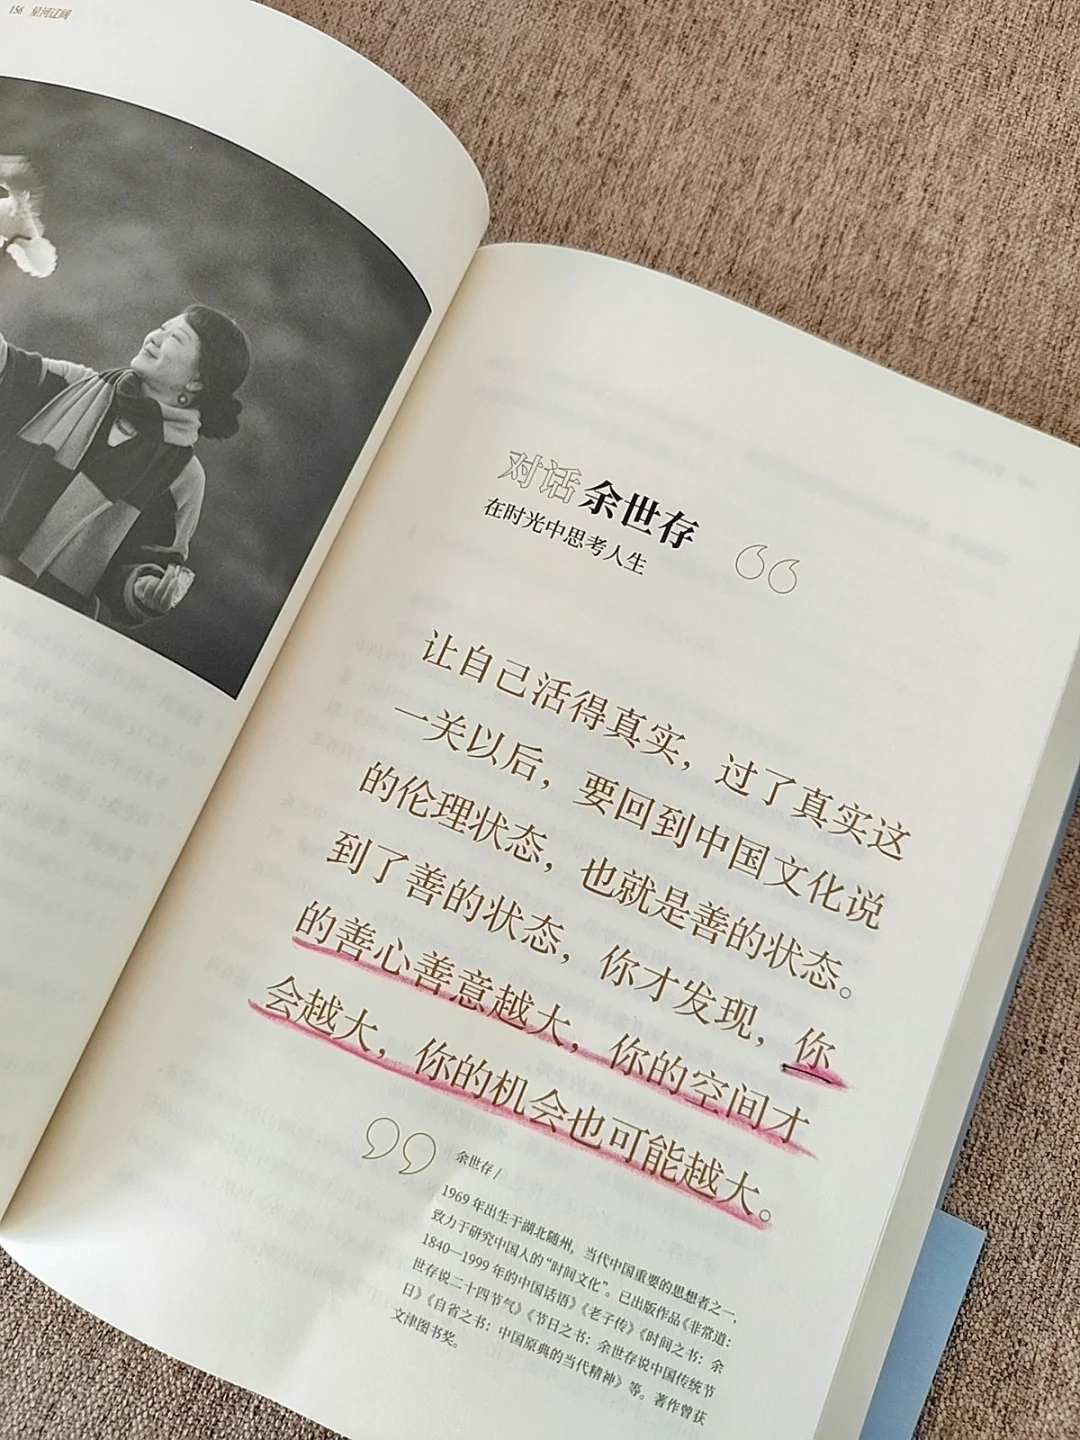 156 星河辽阔
对话 余世存
在时光中思考人生
让自己活得真实，过了真实这
一关以后，要回到中国文化说
的伦理状态，也就是善的状态。
到了善的状态，你才发现，你
的善心善意越大，你的空间才
会越大，你的机会也可能越大。
余世存 /
1969 年出生于湖北随州，当代中国重要的思想者之一，
致力于研究中国人的“时间文化”。已出版作品《非常道：
1840—1999 年的中国话语》《老子传》《时间之书：余
世存说二十四节气》《节日之书：余世存说中国传统节
日》《自省之书：中国原典的当代精神》等。著作曾获
文津图书奖。